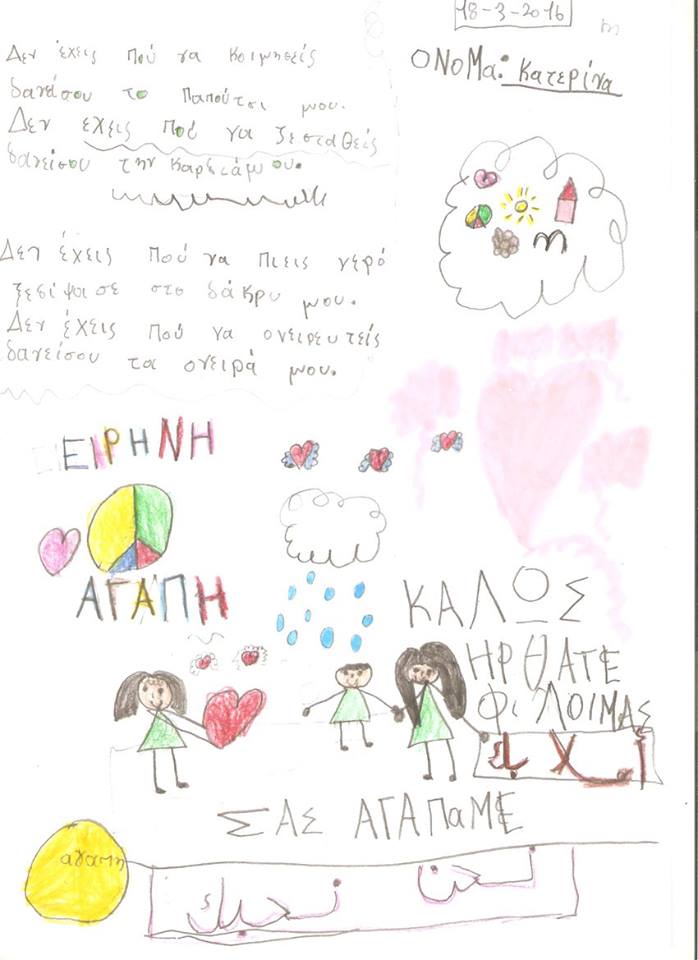 18-3-2016
ΟΝΟΜα: Κατερίνα
Δεν έχεις πού να κοιμηθείς
δανείσου το παπούτσι μου.
Δεν έχεις πού να ζεσταθείς
δανείσου την καρδιάμου.
Δεν έχεις πού να πιεις νερό
ξεδίψασε στο δάκρυ μου.
Δεν έχεις πού να ονειρευτείς
δανείσου τα ονειρά μου.
ΕΙΡΗΝΗ
ΑΓΑΠΗ
ΚΑΛΩΣ
ΗΡΘΑΤΕ
ΦΙΛΟΙΜΑΣ
أهلا بك
ΣΑΣ ΑΓΑΠαΜΕ
αγαπη
نحن نحبك